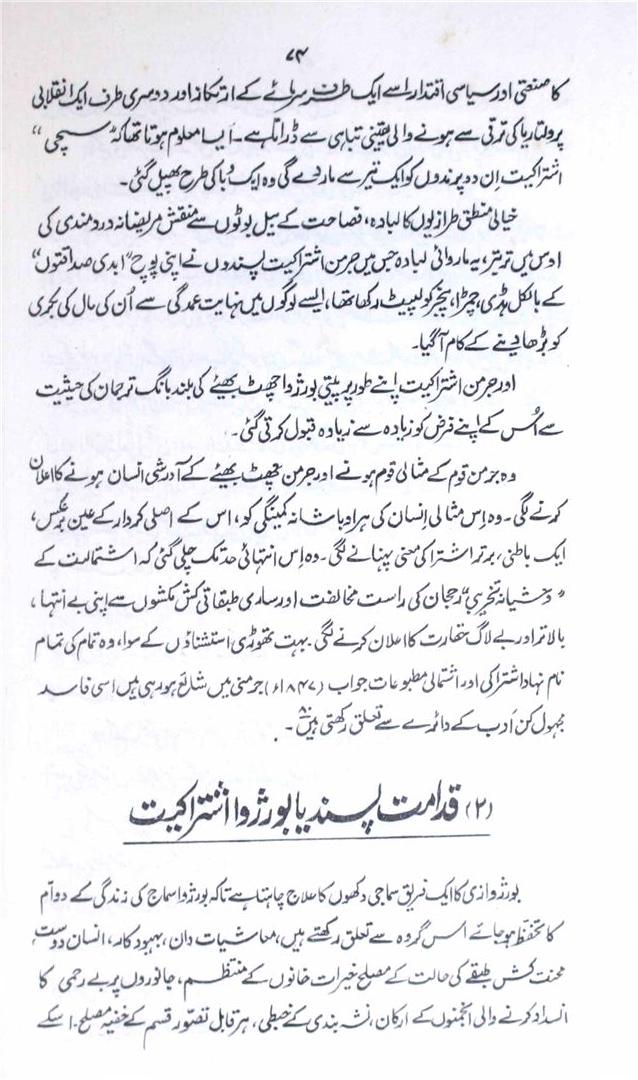 ۷۴
کا صنعتی اور سیاسی اقتدار اسے ایک طرف سرمائے کے ارتکاز اور دوسری طرف ایک انقلابی
پرولتاریا کی ترقی سے ہونے والی یقینی تباہی سے ڈراتا ہے۔ ایسا معلوم ہوتا تھا کہ ”سچی“
اشتراکیت اِن دو پرندوں کو ایک تیر سے مار دے گی وہ ایک وبا کی طرح پھیل گئی۔
خیالی منطق طرازیوں کا لبادہ، فصاحت کے بیل بوٹوں سے منقش مریضانہ دردمندی کی
اوس میں تربتر، یہ ماروائی لبادہ جس میں جرمن اشتراکیت پسندوں نے اپنی پوچ ”ابدی صداقتوں“
کے بالکل ہڈی، چمڑا، پنجر کو لپیٹ رکھا تھا، ایسے لوگوں میں نہایت عمدگی سے اُن کی مال کی بکری
کو بڑھا دینے کے کام آ گیا۔
اور جرمن اشتراکیت اپنے طور پر پیتی بورژوا چھٹ بھیئے کی بلند بانگ ترجمان کی حیثیت
سے اُس کے اپنے فرض کو زیادہ سے زیادہ قبول کرتی گئی۔
وہ جرمن قوم کے مثالی قوم ہونے اور جرمن چھٹ بھیئے کے آدرشی انسان ہونے کا اعلان
کرنے لگی۔ وہ اِس مثالی اِنسان کی ہر اوباشانہ کمینگی کو، اس کے اصلی کردار کے عین برعکس،
ایک باطنی، برتر اشتراکی معنی پہنانے لگی۔ وہ اِس انتہائی حد تک چلی گئی کہ اشتمالت کے
”وحشیانہ تخریبی“ رجحان کی راست مخالفت اور ساری طبقاتی کش مکشوں سے اپنی بے انتہا،
بالاتر اور بے لاگ حقارت کا اعلان کرنے لگی۔ بہت تھوڑی استشناؤں کے سوا، وہ تمام کی تمام
نام نہاد اشتراکی اور اشتمالی مطبوعات جو اب (۱۸۴۷ء) جرمنی میں شائع ہو رہی ہیں اِسی فاسد
مجہول کن ادب کے دائرے سے تعلق رکھتی ہیں۸۔
(۲) قدامت پسند یا بورژوا اشتراکیت
بورژوازی کا ایک فریق سماجی دکھوں کا علاج چاہتا ہے تاکہ بورژوا سماج کی زندگی کے دوام
کا تحفّظ ہو جائے اس گروہ سے تعلق رکھتے ہیں، معاشیات دان، بہبود کار، انسان دوست،
محنت کش طبقے کی حالت کے مصلح خیرات خانوں کے منتظم، جانوروں پر بے رحمی کا
انسداد کرنے والی انجمنوں کے ارکان، نشہ بندی کے خبطی، ہر قابل تصّور قسم کے خفیہ مصلح۔ اسکے